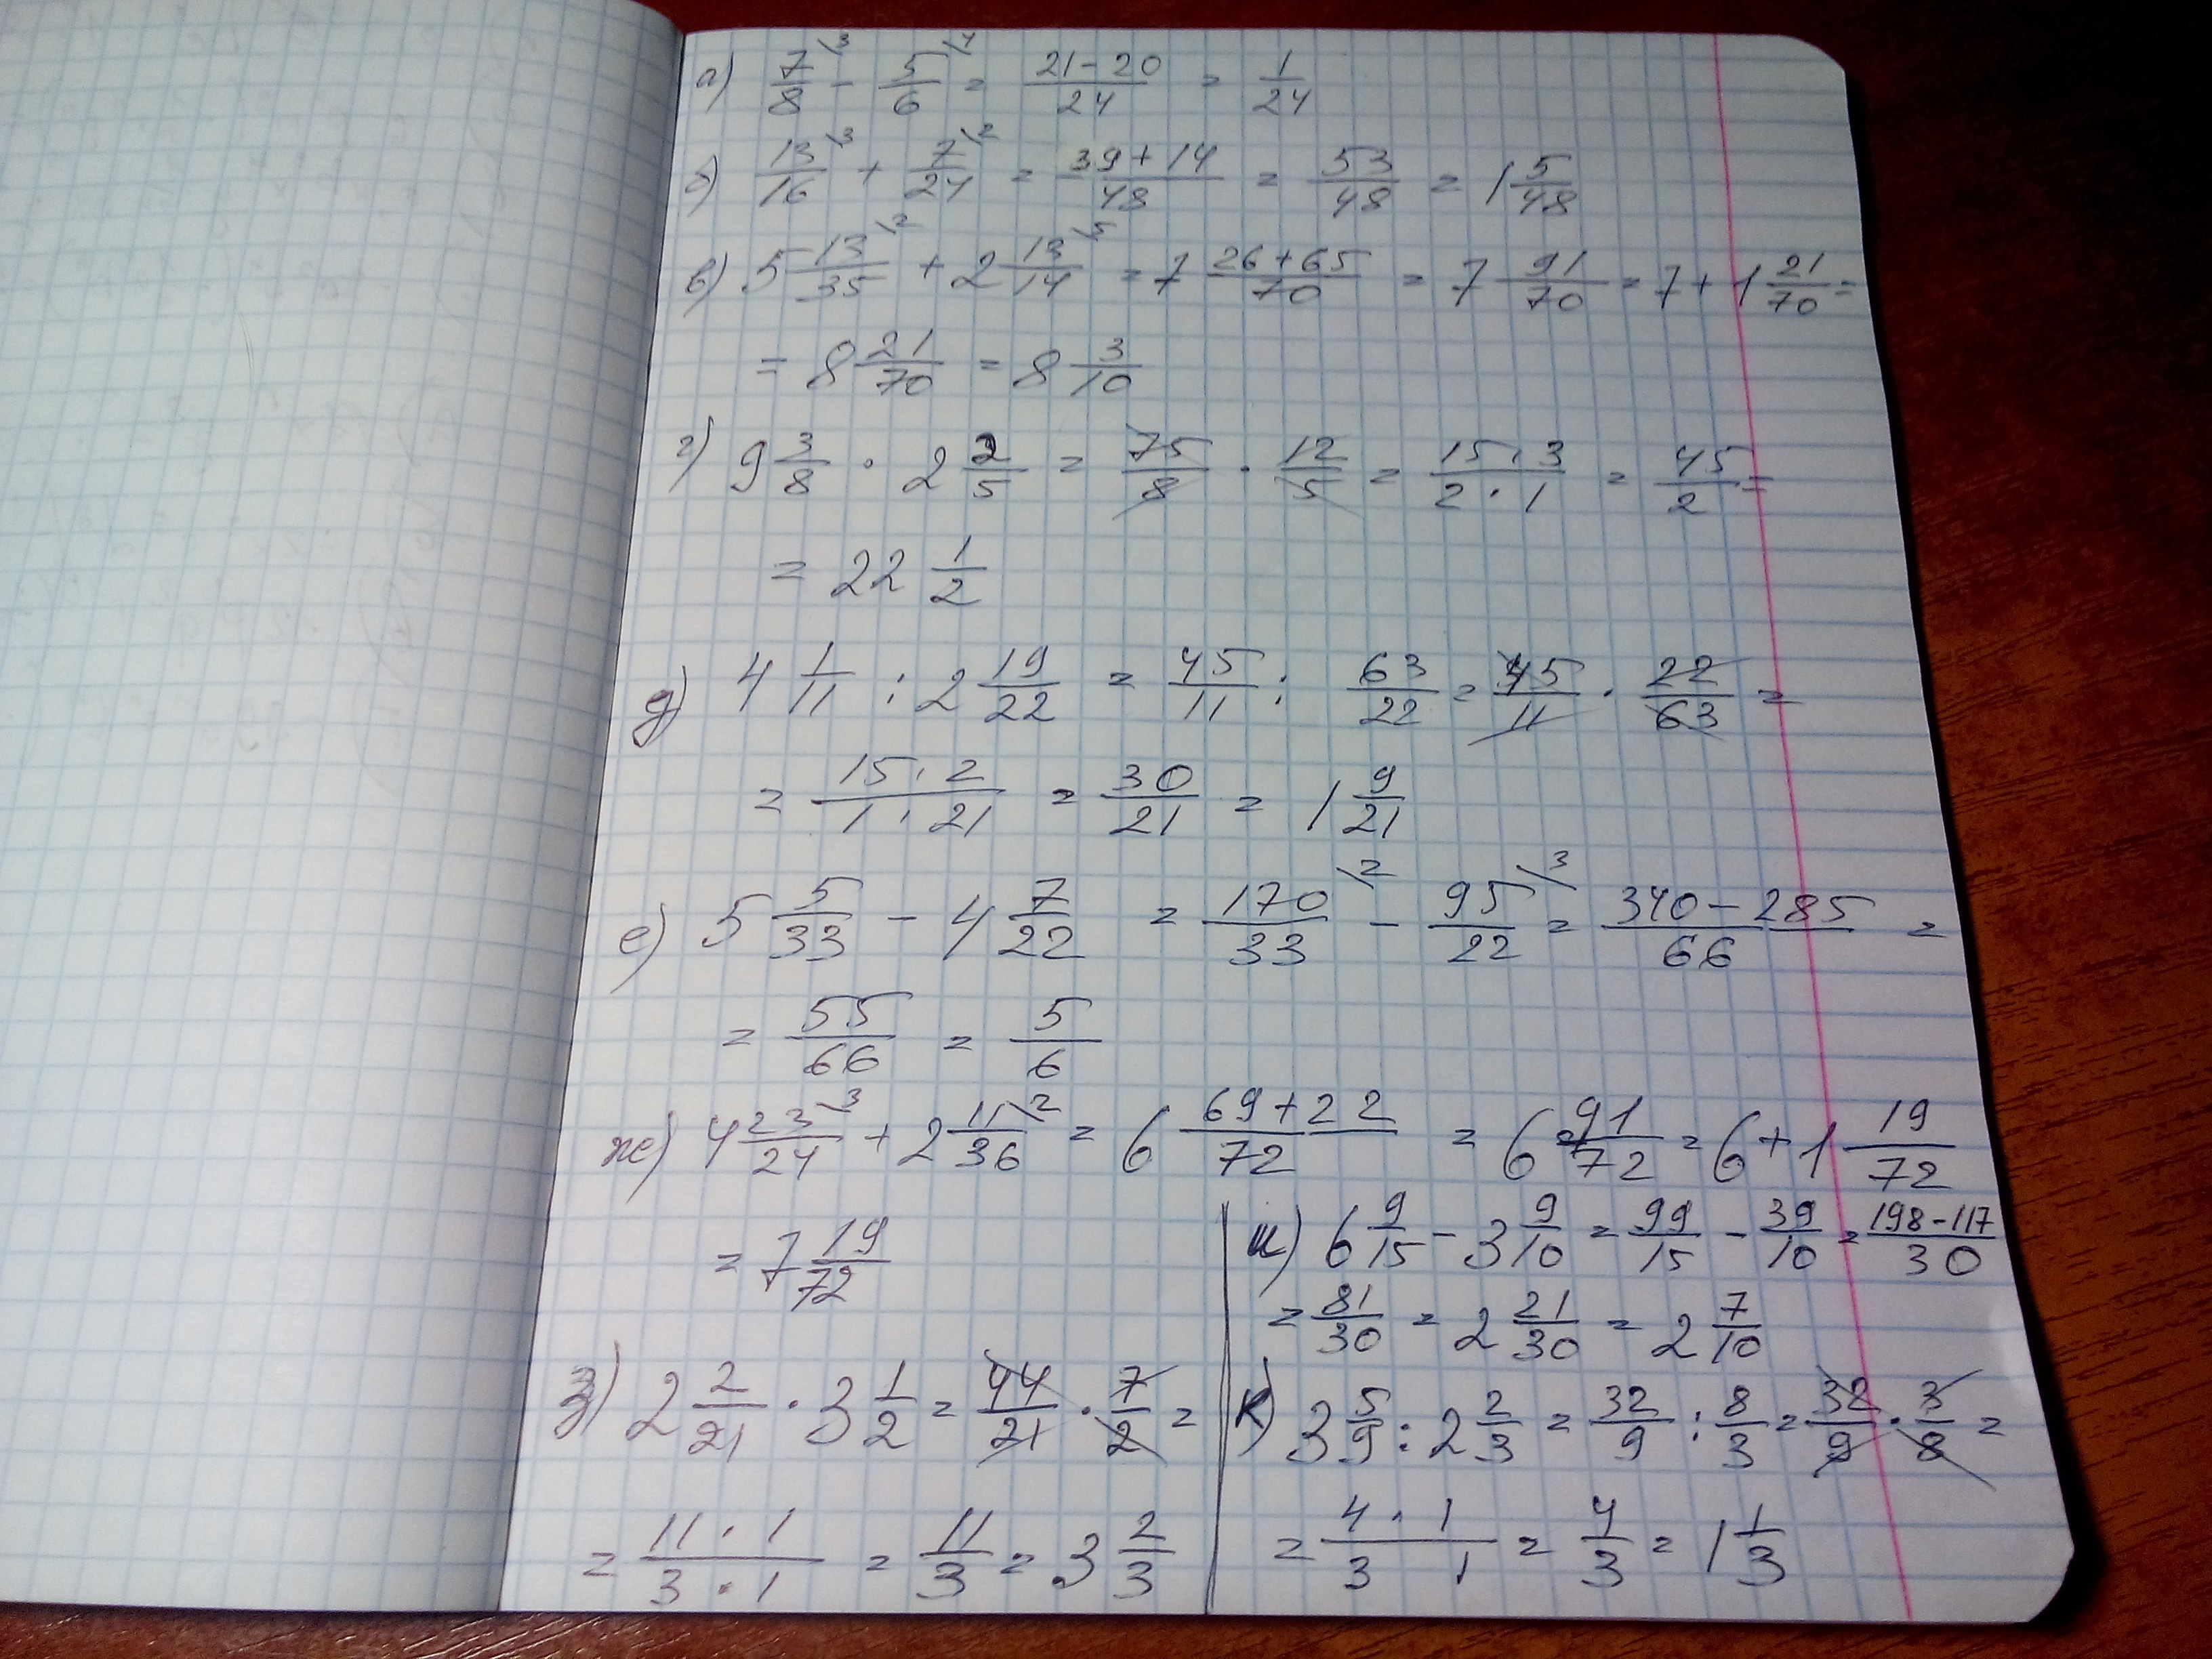 а) 7/8\3 - 5/6\4 = (21-20)/24 = 1/24
б) 13/16\3 + 7/24\2 = (39+14)/48 = 53/48 = 1 5/48
в) 5 13/35\2 + 2 13/14\5 = 7 (26+65)/70 = 7 91/70 = 7+1 21/70 =
= 8 21/70 = 8 3/10
г) 9 3/8 · 2 2/5 = 75/8 · 12/5 = (15·3)/(2·1) = 45/2 =
= 22 1/2
д) 4 1/11 : 2 19/22 = 45/11 : 63/22 = 45/11 · 22/63 =
= (15·2)/(1·21) = 30/21 = 1 9/21
е) 5 5/33 - 4 7/22 = 170/33\2 - 95/22\3 = (340-285)/66 =
= 55/66 = 5/6
ж) 4 23/24\3 + 2 11/36\2 = 6 (69+22)/72 = 6 91/72 = 6+1 19/72
= 7 19/72
з) 2 2/21 · 3 1/2 = 44/21 · 7/2 =
= (11·1)/(3·1) = 11/3 = 3 2/3
и) 6 9/15 - 3 9/10 = 99/15 - 39/10 = (198-117)/30
= 81/30 = 2 21/30 = 2 7/10
к) 3 5/9 : 2 2/3 = 32/9 : 8/3 = 32/9 · 3/8 =
= (4·1)/(3 1) = 4/3 = 1 1/3